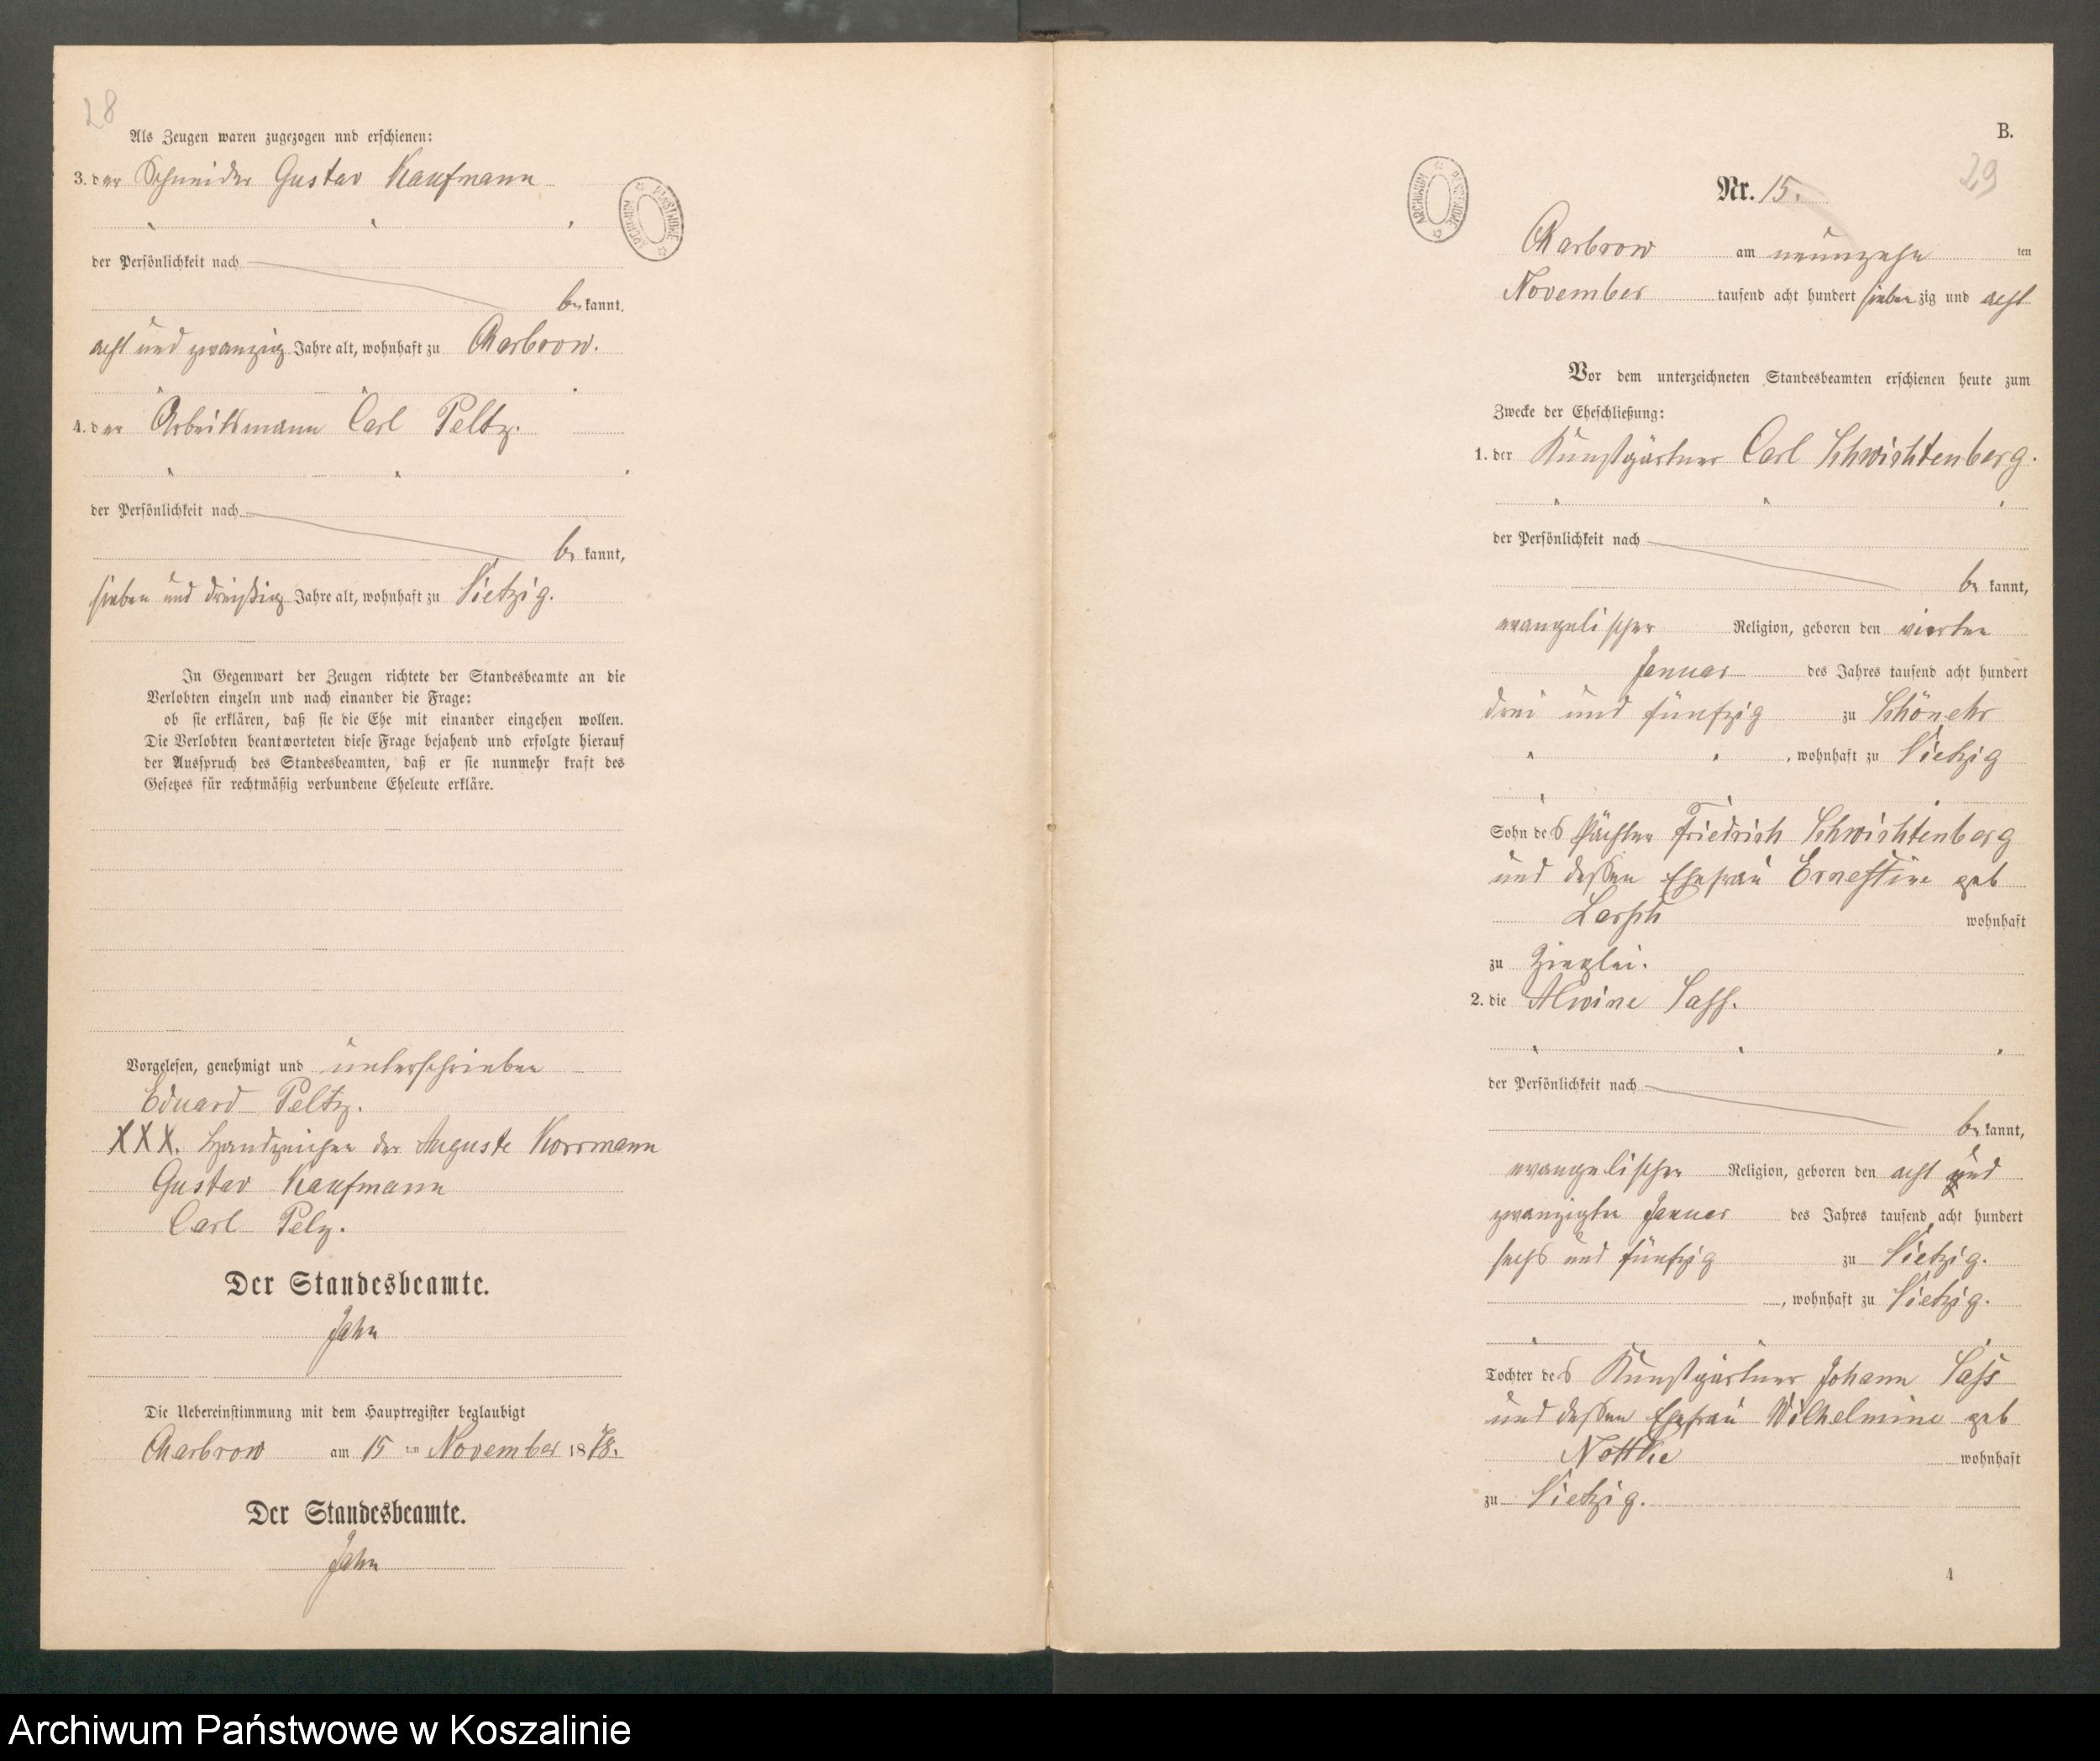 28
Als Zeugen waren zugezogen nnd erschienen:
3. der Schneider Gustav Kaufmann
der Persönlichkeit nach
be kannt,
acht und zwanzig Jahre alt, wohnhaft zu Charbrow.
4. der Arbeitsmann Carl Peltz.
der Persönlichkeit nach
be kannt,
sieben und dreißig Jahre alt, wohnhaft zu Vietzig.
In Gegenwart der Zeugen richtete der Standesbeamte an die
Verlobten einzeln und nach einander die Frage:
ob sie erklären, daß sie die Ehe mit einander eingehen wollen.
Die Verlobten beantworteten diese Frage bejahend und erfolgte hierauf
der Ausspruch des Standesbeamten, daß er sie nunmehr kraft des
Gesetzes für rechtmäßig verbundene Eheleute erkläre.
Vorgelesen, genehmigt und unterschrieben
Eduard Peltz.
XXX. Handzeichen der Auguste Korrmann
Gustav Kaufmann
Carl Pelz.
Der Standesbeamte.
Jahn
Die Uebereinstimmung mit dem Hauptregister beglaubigt
Charbrow am 15 ten November 18 78.
Der Standesbeamte.
Jahn
ARCHIWUM PAŃSTWOWE
B.
29
ARCHIWUM PAŃSTWOWE
Nr. 15.
Charbrow am neunzehn ten
November tausend acht hundert sieben zig und acht
Vor dem unterzeichneten Standesbeamten erschienen heute zum
Zwecke der Eheschließung:
1. der Kunstgärtner Carl Schwichtenberg.
der Persönlichkeit nach
be kannt,
evangelischer Religion, geboren den vierten
Januar des Jahres tausend acht hundert
drei und fünfzig zu Schönehr
, wohnhaft zu Vietzig
Sohn des Pächter Friedrich Schwichtenberg
und dessen Ehefrau Ernestine geb
wohnhaft
zu Zieglei.
2. die Alwine Sass.
der Persönlichkeit nach
be kannt,
evangelischer Religion, geboren den acht und
zwanzigten Januar des Jahres tausend acht hundert
sechs und fünfzig zu Vietzig.
, wohnhaft zu Vietzig.
Tochter des Kunstgärtner Johann Sass
und dessen Ehefrau Wilhelmine geb
Nottke wohnhaft
zu Vietzig.
4
Archiwum Państwowe w Koszalinie